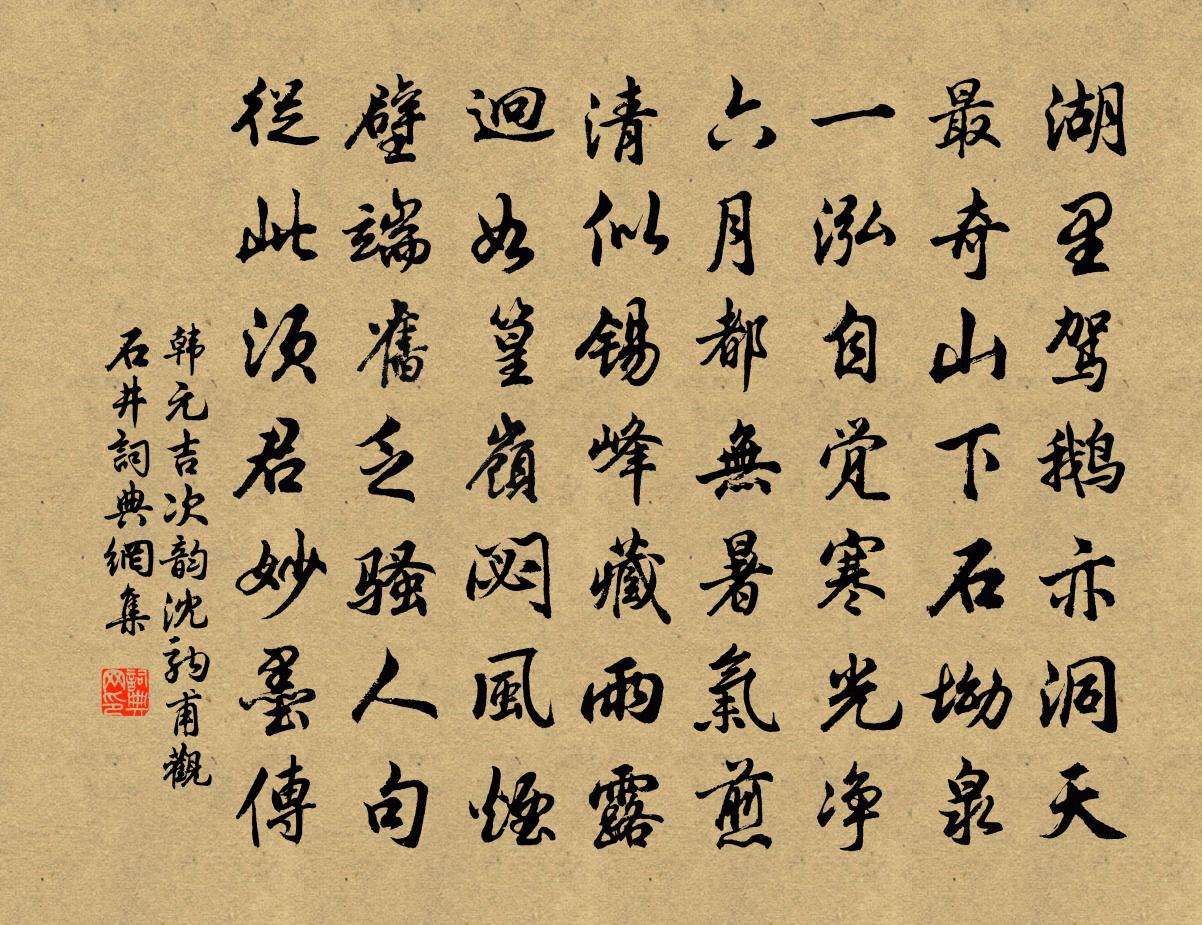 湖里駕鹅亦洞天
最奇山下石坳泉
一泓自觉寒光净
六月都無暑氣煎
清似錫峰藏雨露
迥如篁嶺閟風煙
壁端舊乏骚人句
從此須君妙墨傳
韩元吉次韵沈駒甫觀
石井詞典網集
詞典网印